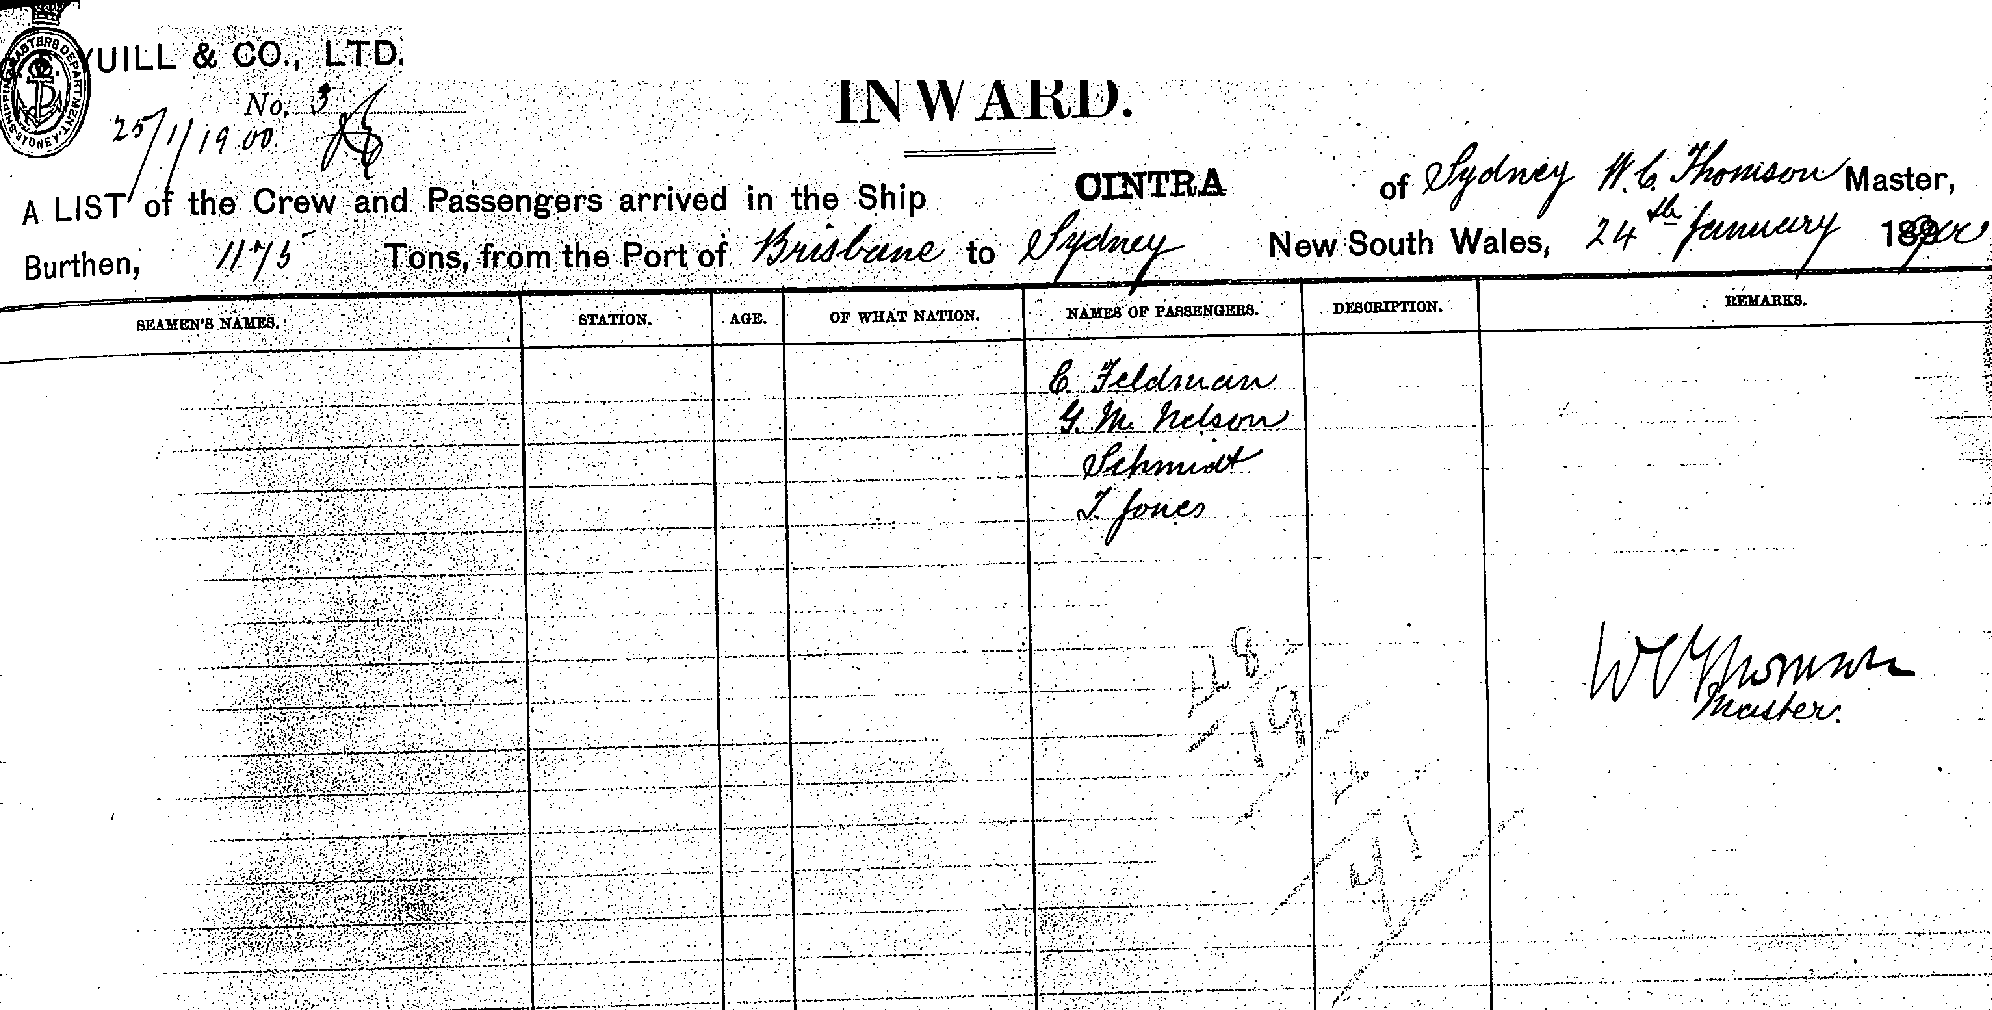 YUILL & CO., LTD.
SHIPPING MASTERS DEPARTMENT SYDNEY
INWARD.
No. 3
25/1/1900
A LIST of the Crew and Passengers arrived in the Ship CINTRA of Sydney W. C. Thomson Master,
Burthen, 1175 Tons, from the Port of Brisbane to Sydney New South Wales, 24th January 189
SEAMEN'S NAMES. STATION. AGE. OF WHAT NATION. NAMES OF PASSENGERS. DESCRIPTION. REMARKS.
E Feldman
G. M. Nelson
Schmidt
T. Jones
W C Thomson
Master.
19